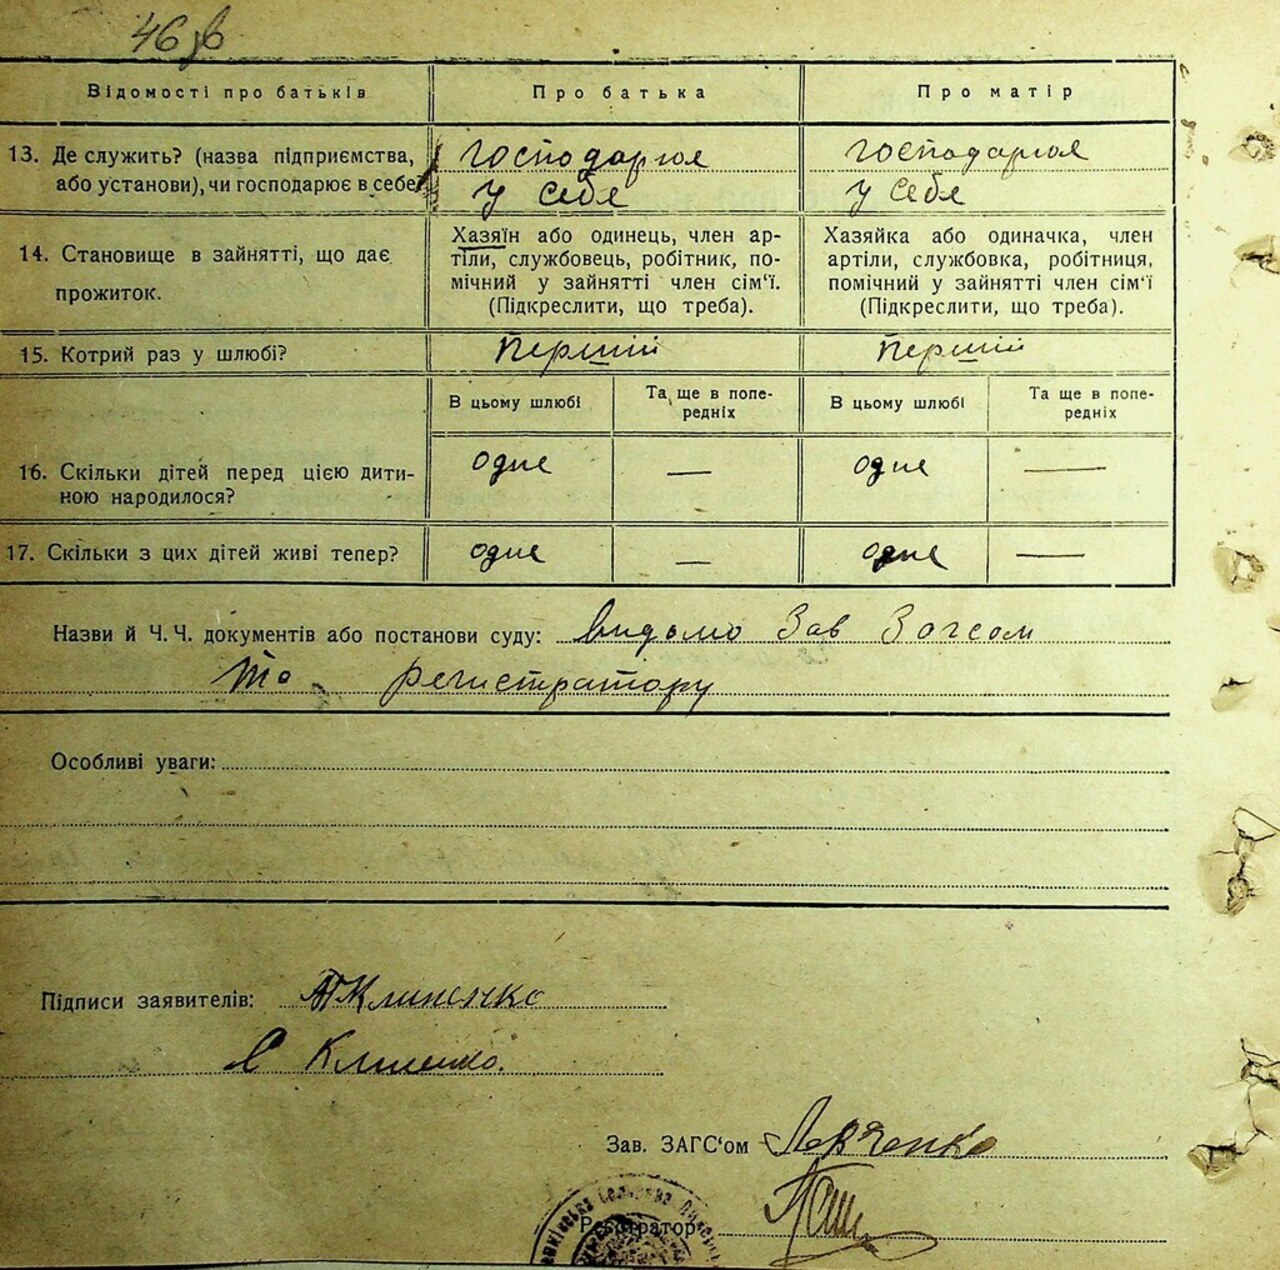 46 зв
Відомості про батьків
Про батька
Про матір
13. Де служить? (назва підприємства,
або установи), чи господарює в себе?
господарює
у себя
господарює
у себя
14. Становище в зайнятті, що дає
прожиток.
Хазяїн або одинець, член ар-
тіли, службовець, робітник, по-
мічний у зайнятті член сім'ї.
(Підкреслити, що треба).
Хазяйка або одиначка, член
артіли, службовка, робітниця,
помічний у зайнятті член сім'ї
(Підкреслити, що треба).
15. Котрий раз у шлюбі?
Перший
Перший
В цьому шлюбі
Та ще в попе-
редніх
В цьому шлюбі
Та ще в попе-
редніх
16. Скільки дітей перед цією дити-
ною народилося?
одне
—
одне
—
17. Скільки з цих дітей живі тепер?
одне
—
одне
—
Назви й Ч.Ч. документів або постанови суду: видомо Зав Загсом
то регистратору
Особливі уваги:
Підписи заявителів: Клименко
С Клименко.
Зав. ЗАГС'ом Левченко
Реєстратор